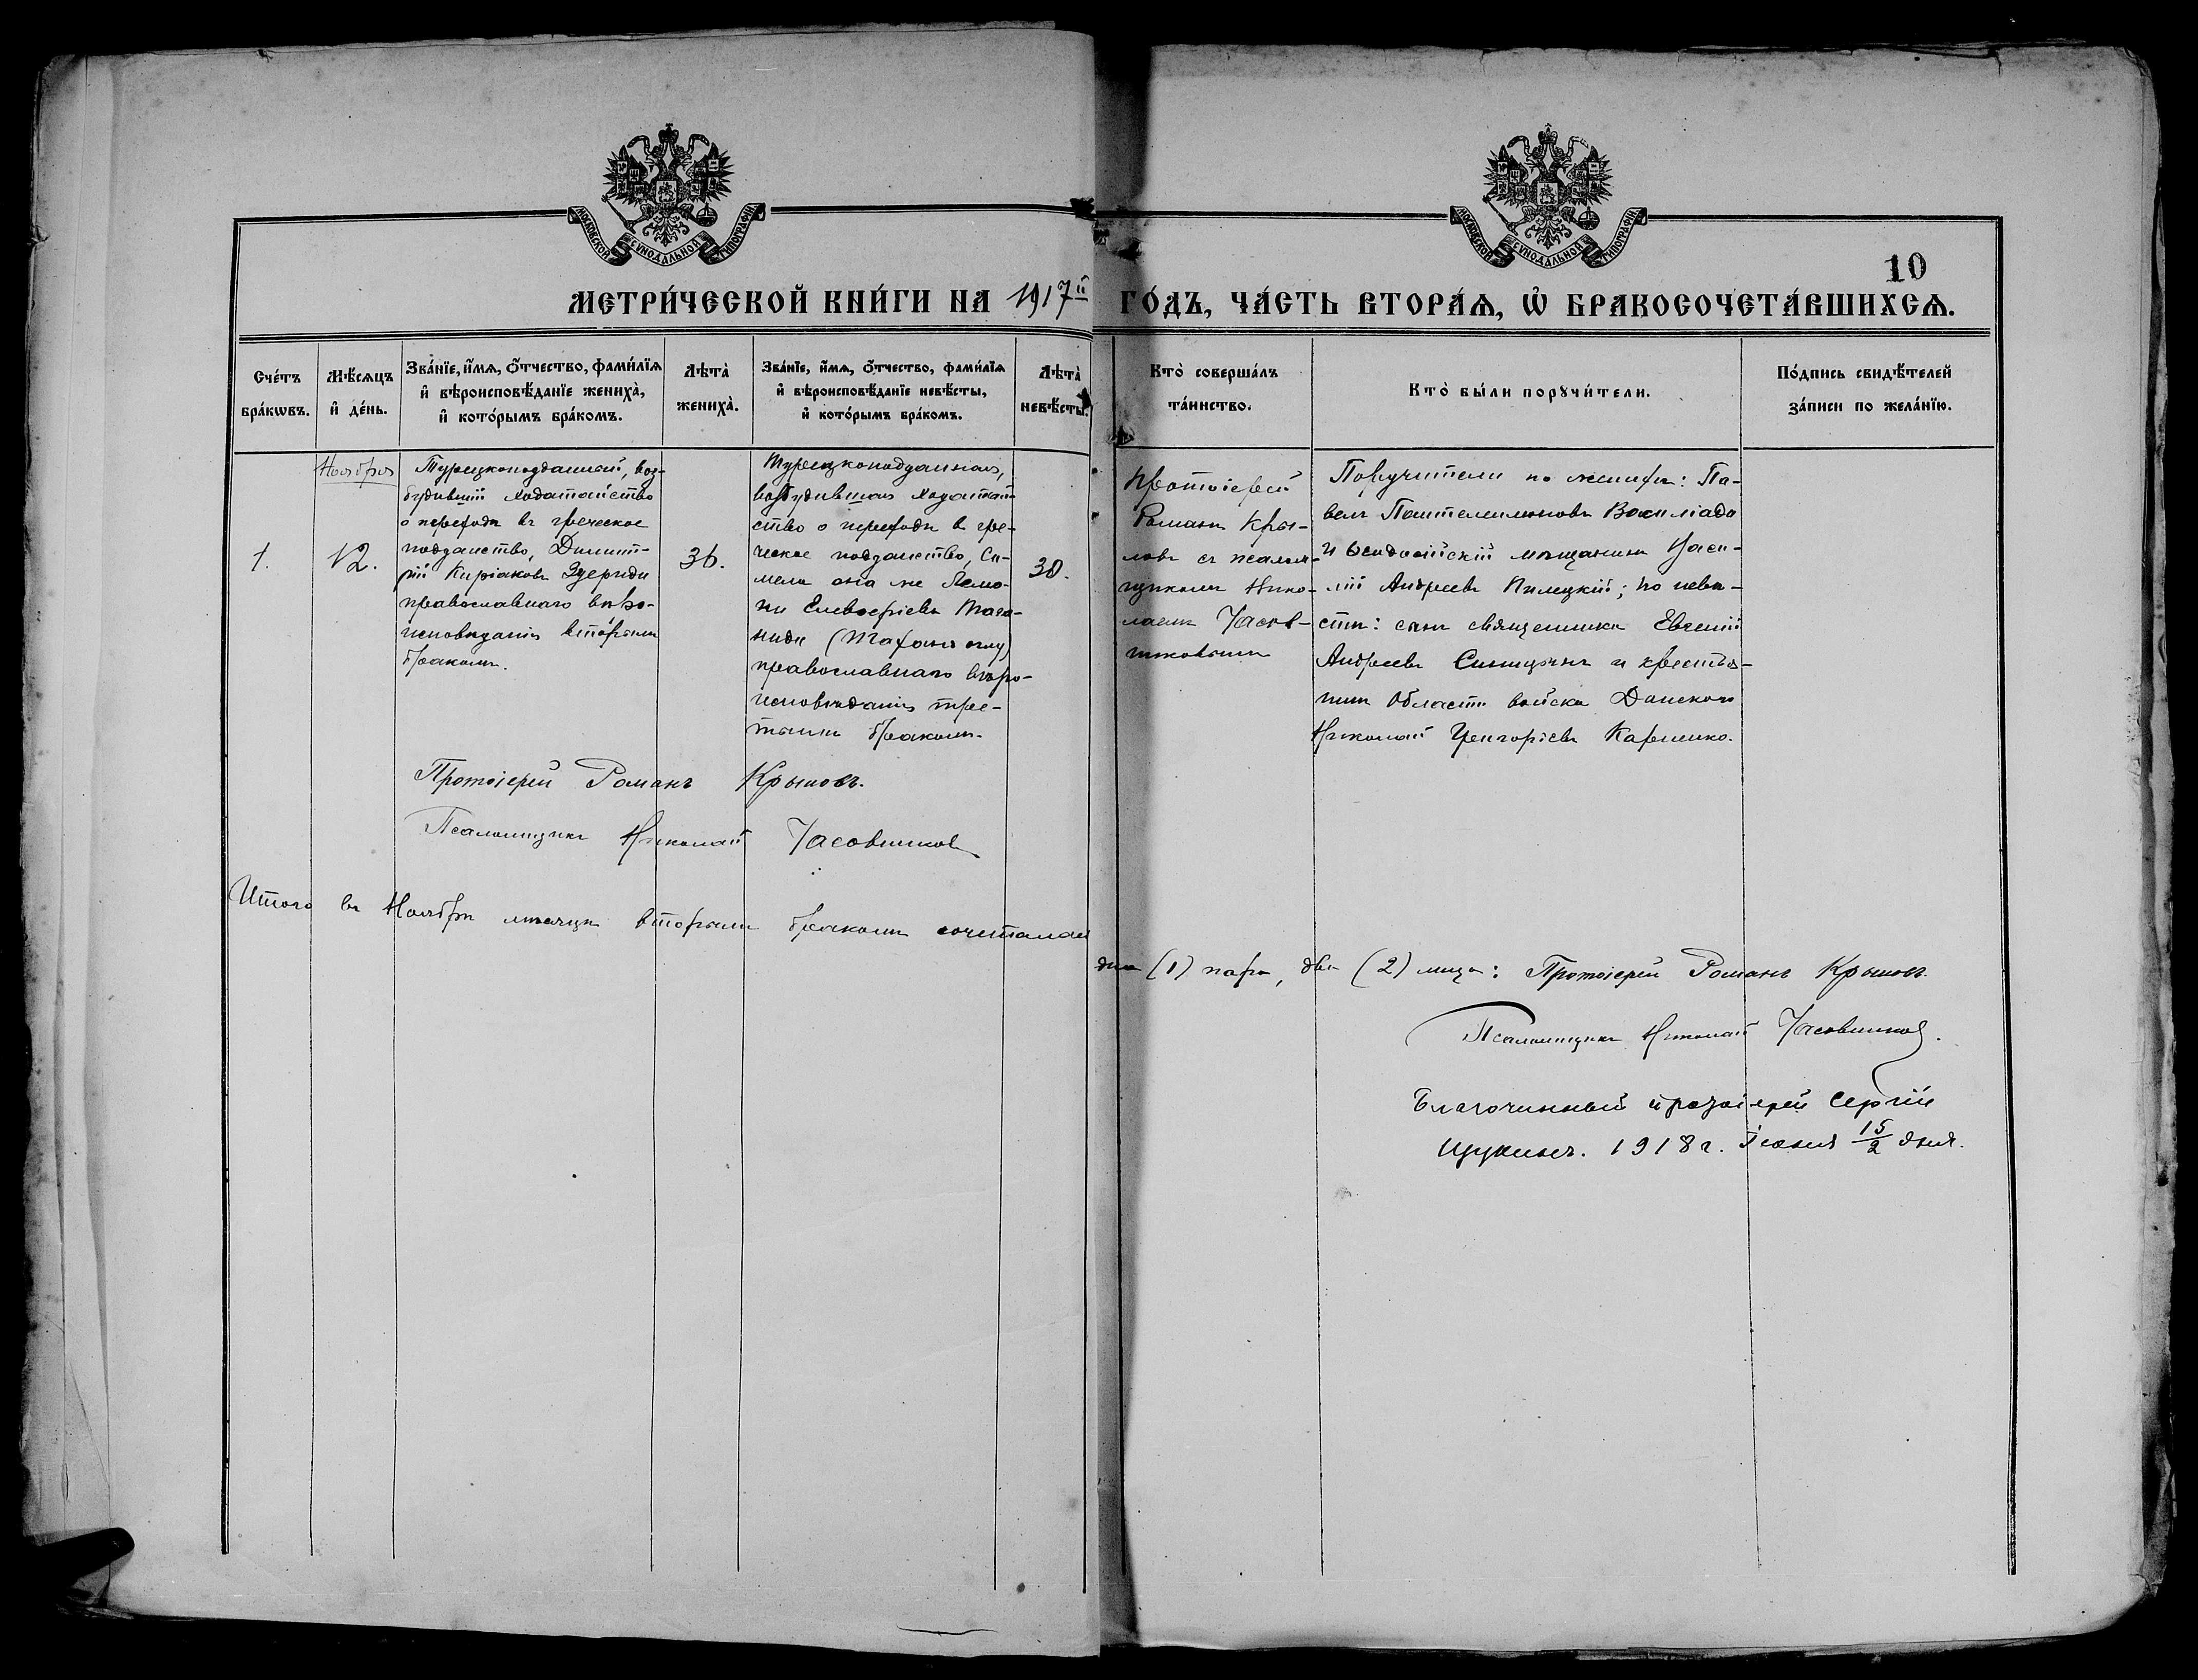 МОСКОВСКОЙ СѴНОДАЛЬНОЙ ТИПОГРАФІИ
МОСКОВСКОЙ СѴНОДАЛЬНОЙ ТИПОГРАФІИ
10
МЕТРИ́ЧЕСКОЙ КНИ́ГИ НА 1917й ГО́ДЪ, ЧА́СТЬ ВТОРА́Ѧ, Ѽ БРАКОСОЧЕТА́ВШИХСѦ.
Сче́тъ бра́кѡвъ.
Мѣ́сѧцъ и҆ де́нь.
Зва́нїе, и҆́мѧ, ѻ҆́тчество, фами́лїѧ и҆ вѣроисповѣ́данїе жениха̀, и҆ кото́рымъ бра́комъ.
Лѣта̀ жениха̀.
Зва́нїе, и҆́мѧ, ѻ҆́тчество, фами́лїѧ и҆ вѣроисповѣ́данїе невѣ́сты, и҆ кото́рымъ бра́комъ.
Лѣта̀ невѣ́сты.
Кто̀ соверша́лъ та́инство.
Кто̀ бы́ли порꙋчи́тели.
По́дпись свидѣ́телей за́писи по жела́нїю.
1.
Ноября
12.
Турецкоподданный, воз-
будившій ходатайство
о переходѣ въ греческое
подданство, Димит-
рій Киріаковъ
православнаго вѣро-
исповѣданія вторымъ
бракомъ.
36.
Турецкоподданная,
возбудившая ходатай-
ство о переходѣ в гре-
ческое подданство, Си-
мела она же
Елевѳеріева
православнаго вѣро-
исповѣданія тре-
тьимъ бракомъ.
30.
Протоіерей
Романъ Кры-
ловъ съ псалом-
щикомъ Нико-
лаемъ Часов-
никовымъ
Поручители по женихѣ: Па-
велъ Пантелеимоновъ Василіади
и Ѳеодосійскій мѣщанинъ Васи-
лій Андреевъ Пилецкій; по невѣ-
стѣ: сынъ священника Евгеній
Андреевъ Синицынъ и крестья-
нинъ Области войска Донского
Николай Григорьевъ
Протоіерей Романъ Крыловъ.
Псаломщикъ Николай Часовников
Итого въ Ноябрѣ мѣсяцѣ вторымъ бракомъ сочеталась
дна (1) пара, два (2) лица: Протоіерей Романъ Крыловъ.
Псаломщикъ Николай Часовников.
Благочинный протоіерей Сергій
Щукинъ. 1918 г. Іюня 15/2 дня.